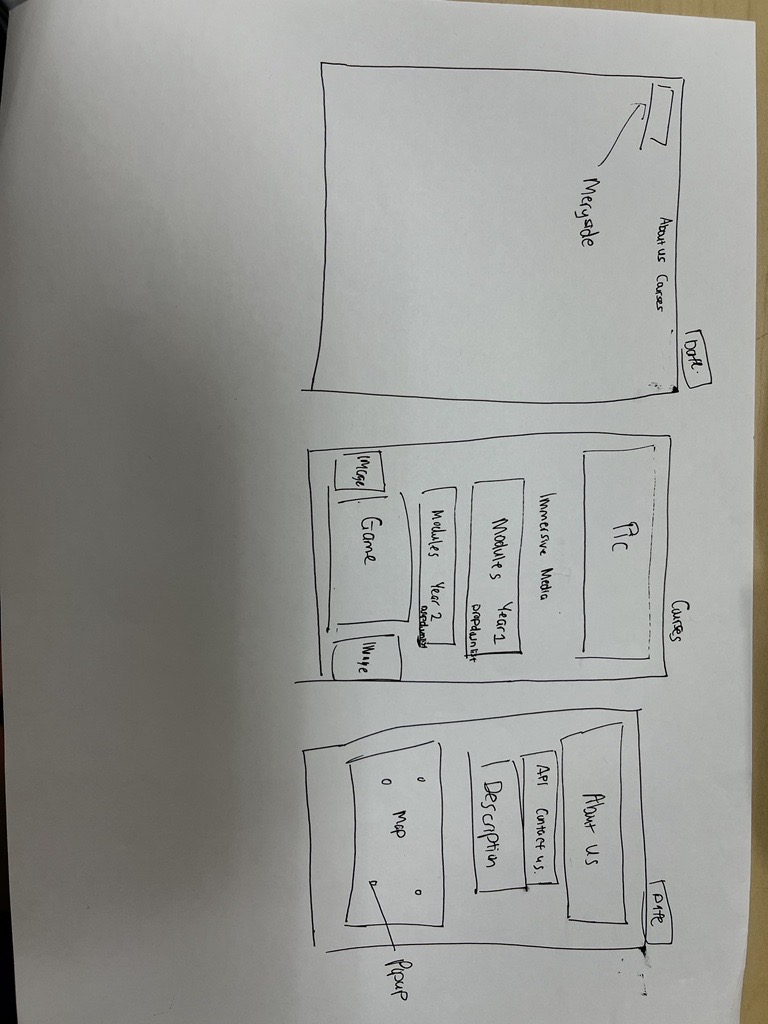 Date.
About us Courses
Meryside
Courses
Pic
Immersive Media
Modules Year 1
Dropdown list
Modules Year 2
Game
Image
Image
Date
About us
API Contact us.
Description
Map
Popup